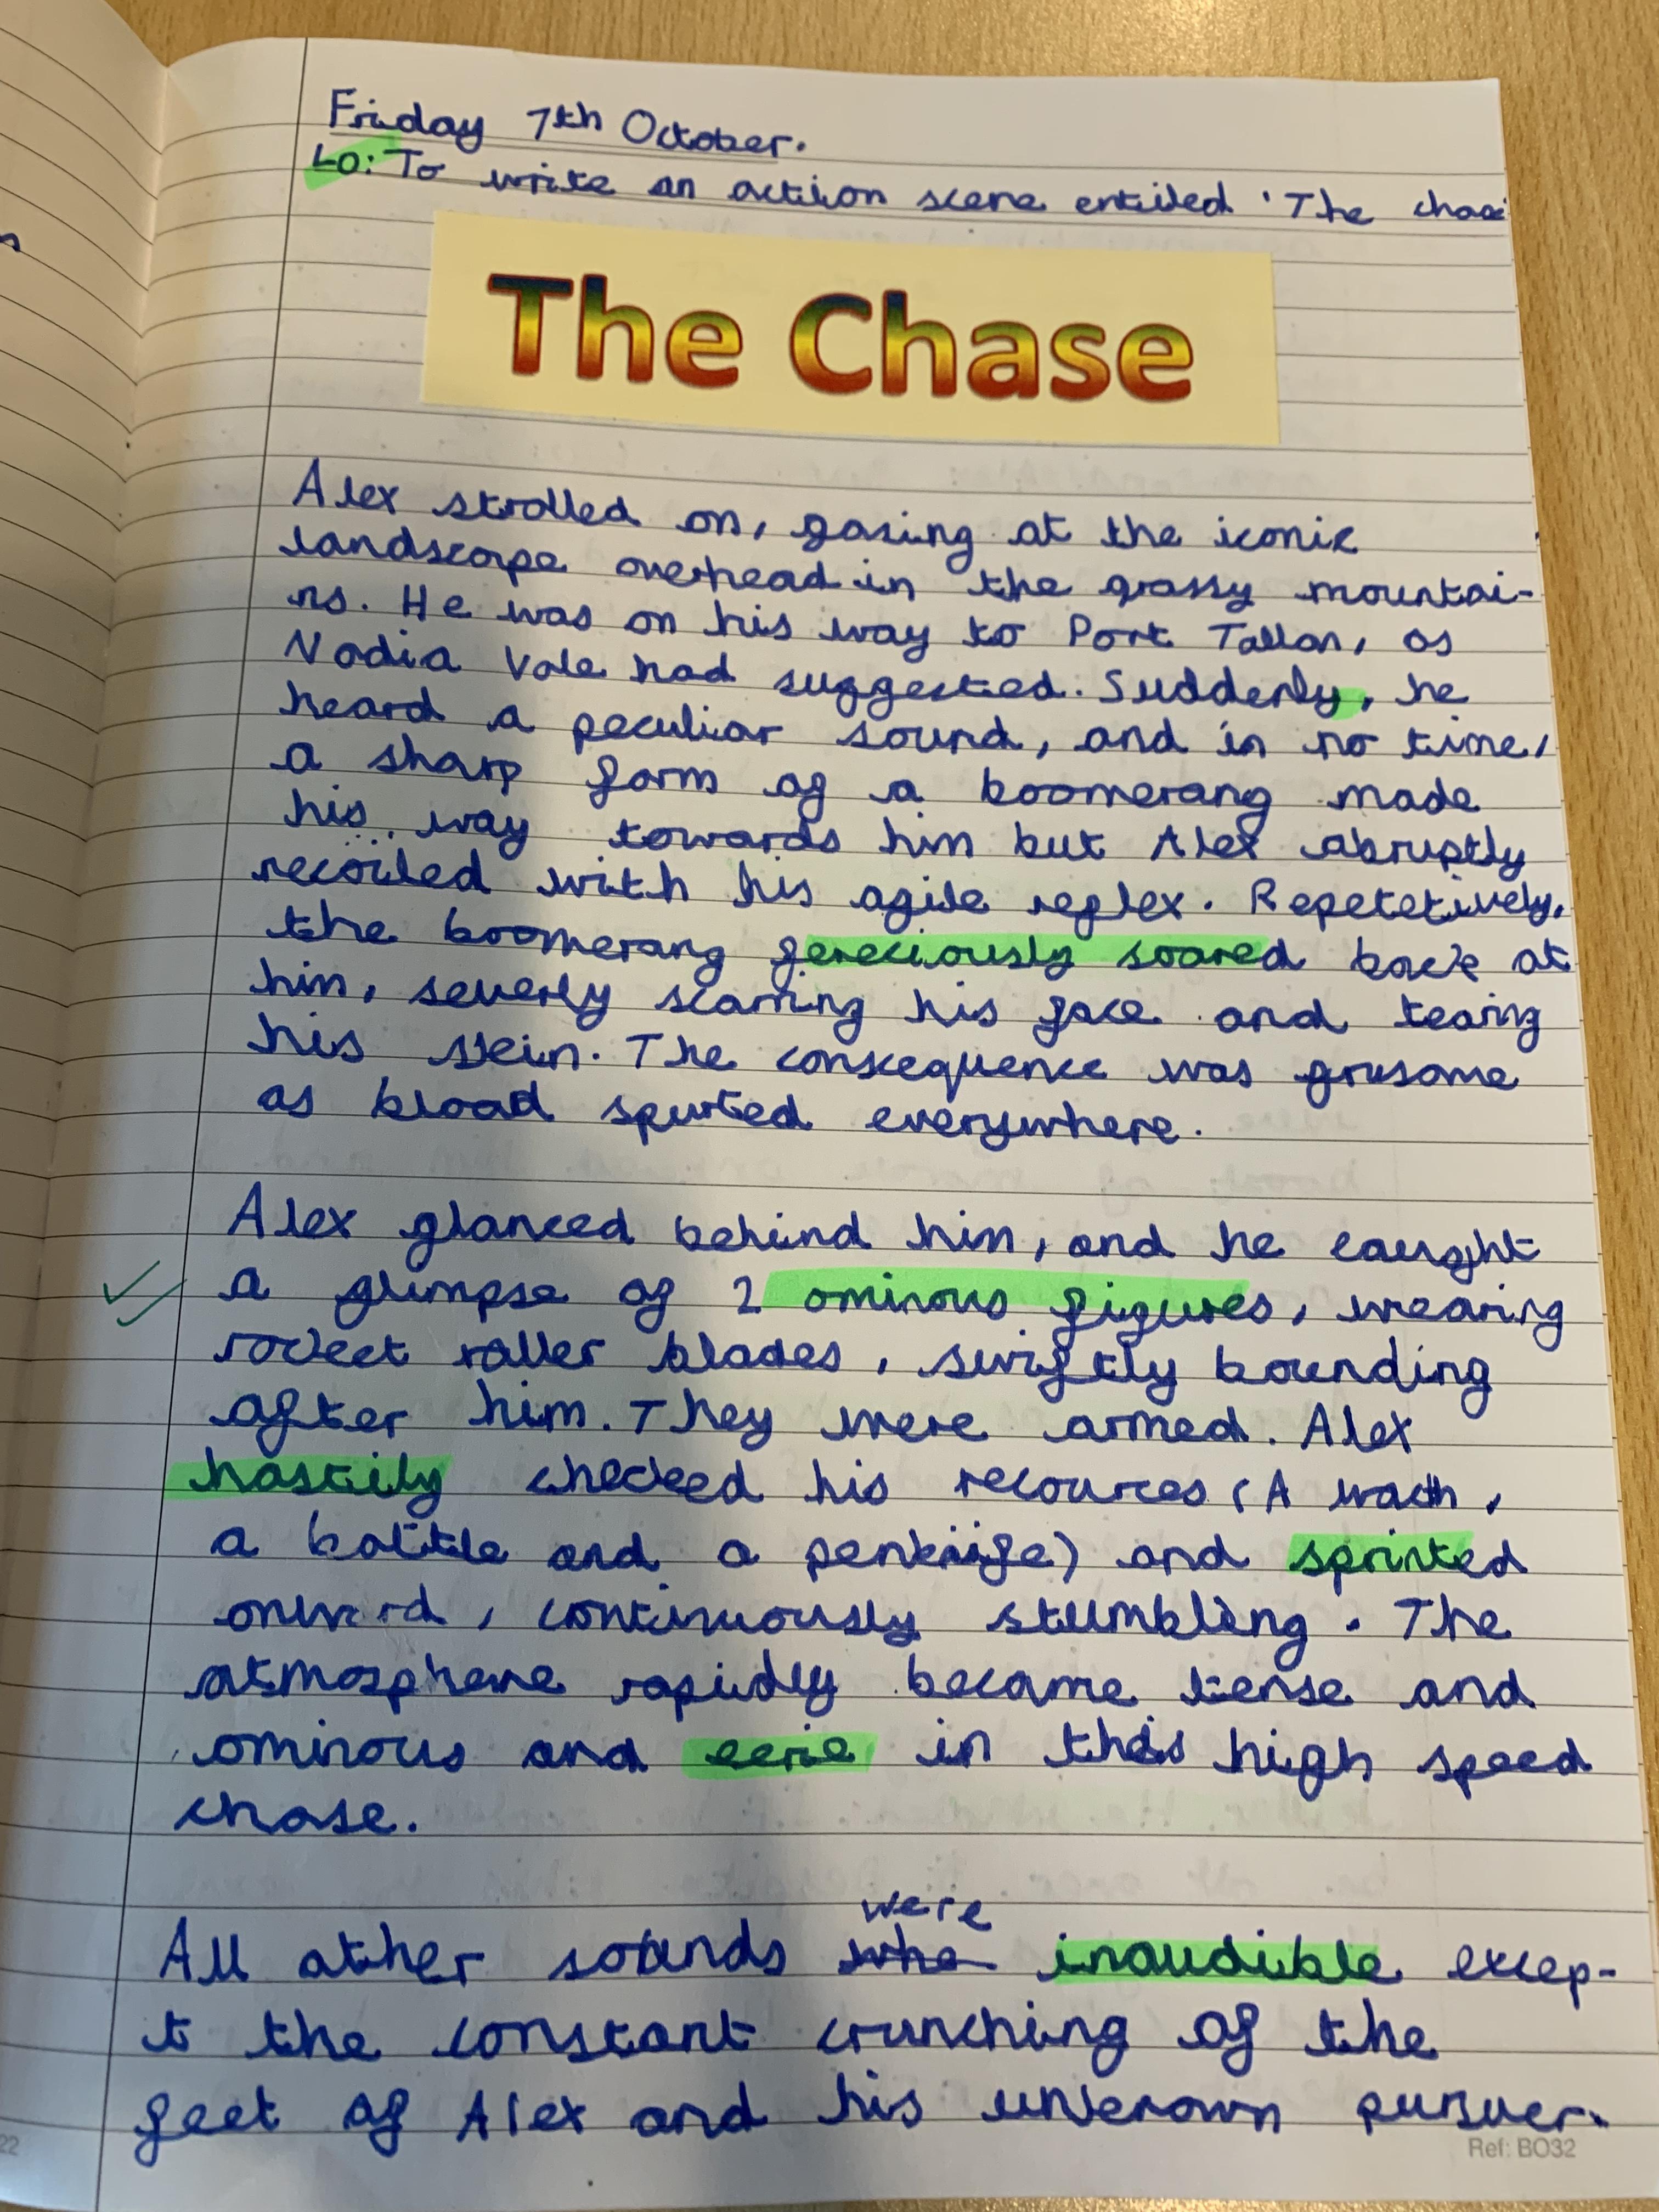 Friday 7th October.
LO: To write an action scene entitled 'The chase
The Chase
Alex strolled on, gasing at the iconic
landscape overhead in the grassy mountai-
ns. He was on his way to Port Tallon, as
Nadia Vole had suggested. Suddenly, he
heard a peculiar sound, and in no time,
a sharp form of a boomerang made
his way towards him but Alex abruptly
recoiled with his agile reflex. Repetetively,
the boomerang fereciously soared back at
him, severly scarring his face and tearing
his skin. The consequence was grusome
as blood spurted everywhere.
Alex glanced behind him, and he caught
a glimpse of 2 ominous figures, wearing
rocket roller blades, swiftly bounding
after him. They were armed. Alex
hastily checked his recources (A wach,
a bottle and a penknife) and sprinted
onward, continuously stumbling. The
atmosphere rapidly became tense and
ominous and eerie in this high speed
chase.
were
All other sounds whe inaudible excep-
t the constant crunching of the
feet of Alex and his unknown pursuer.
22
Ref: BO32